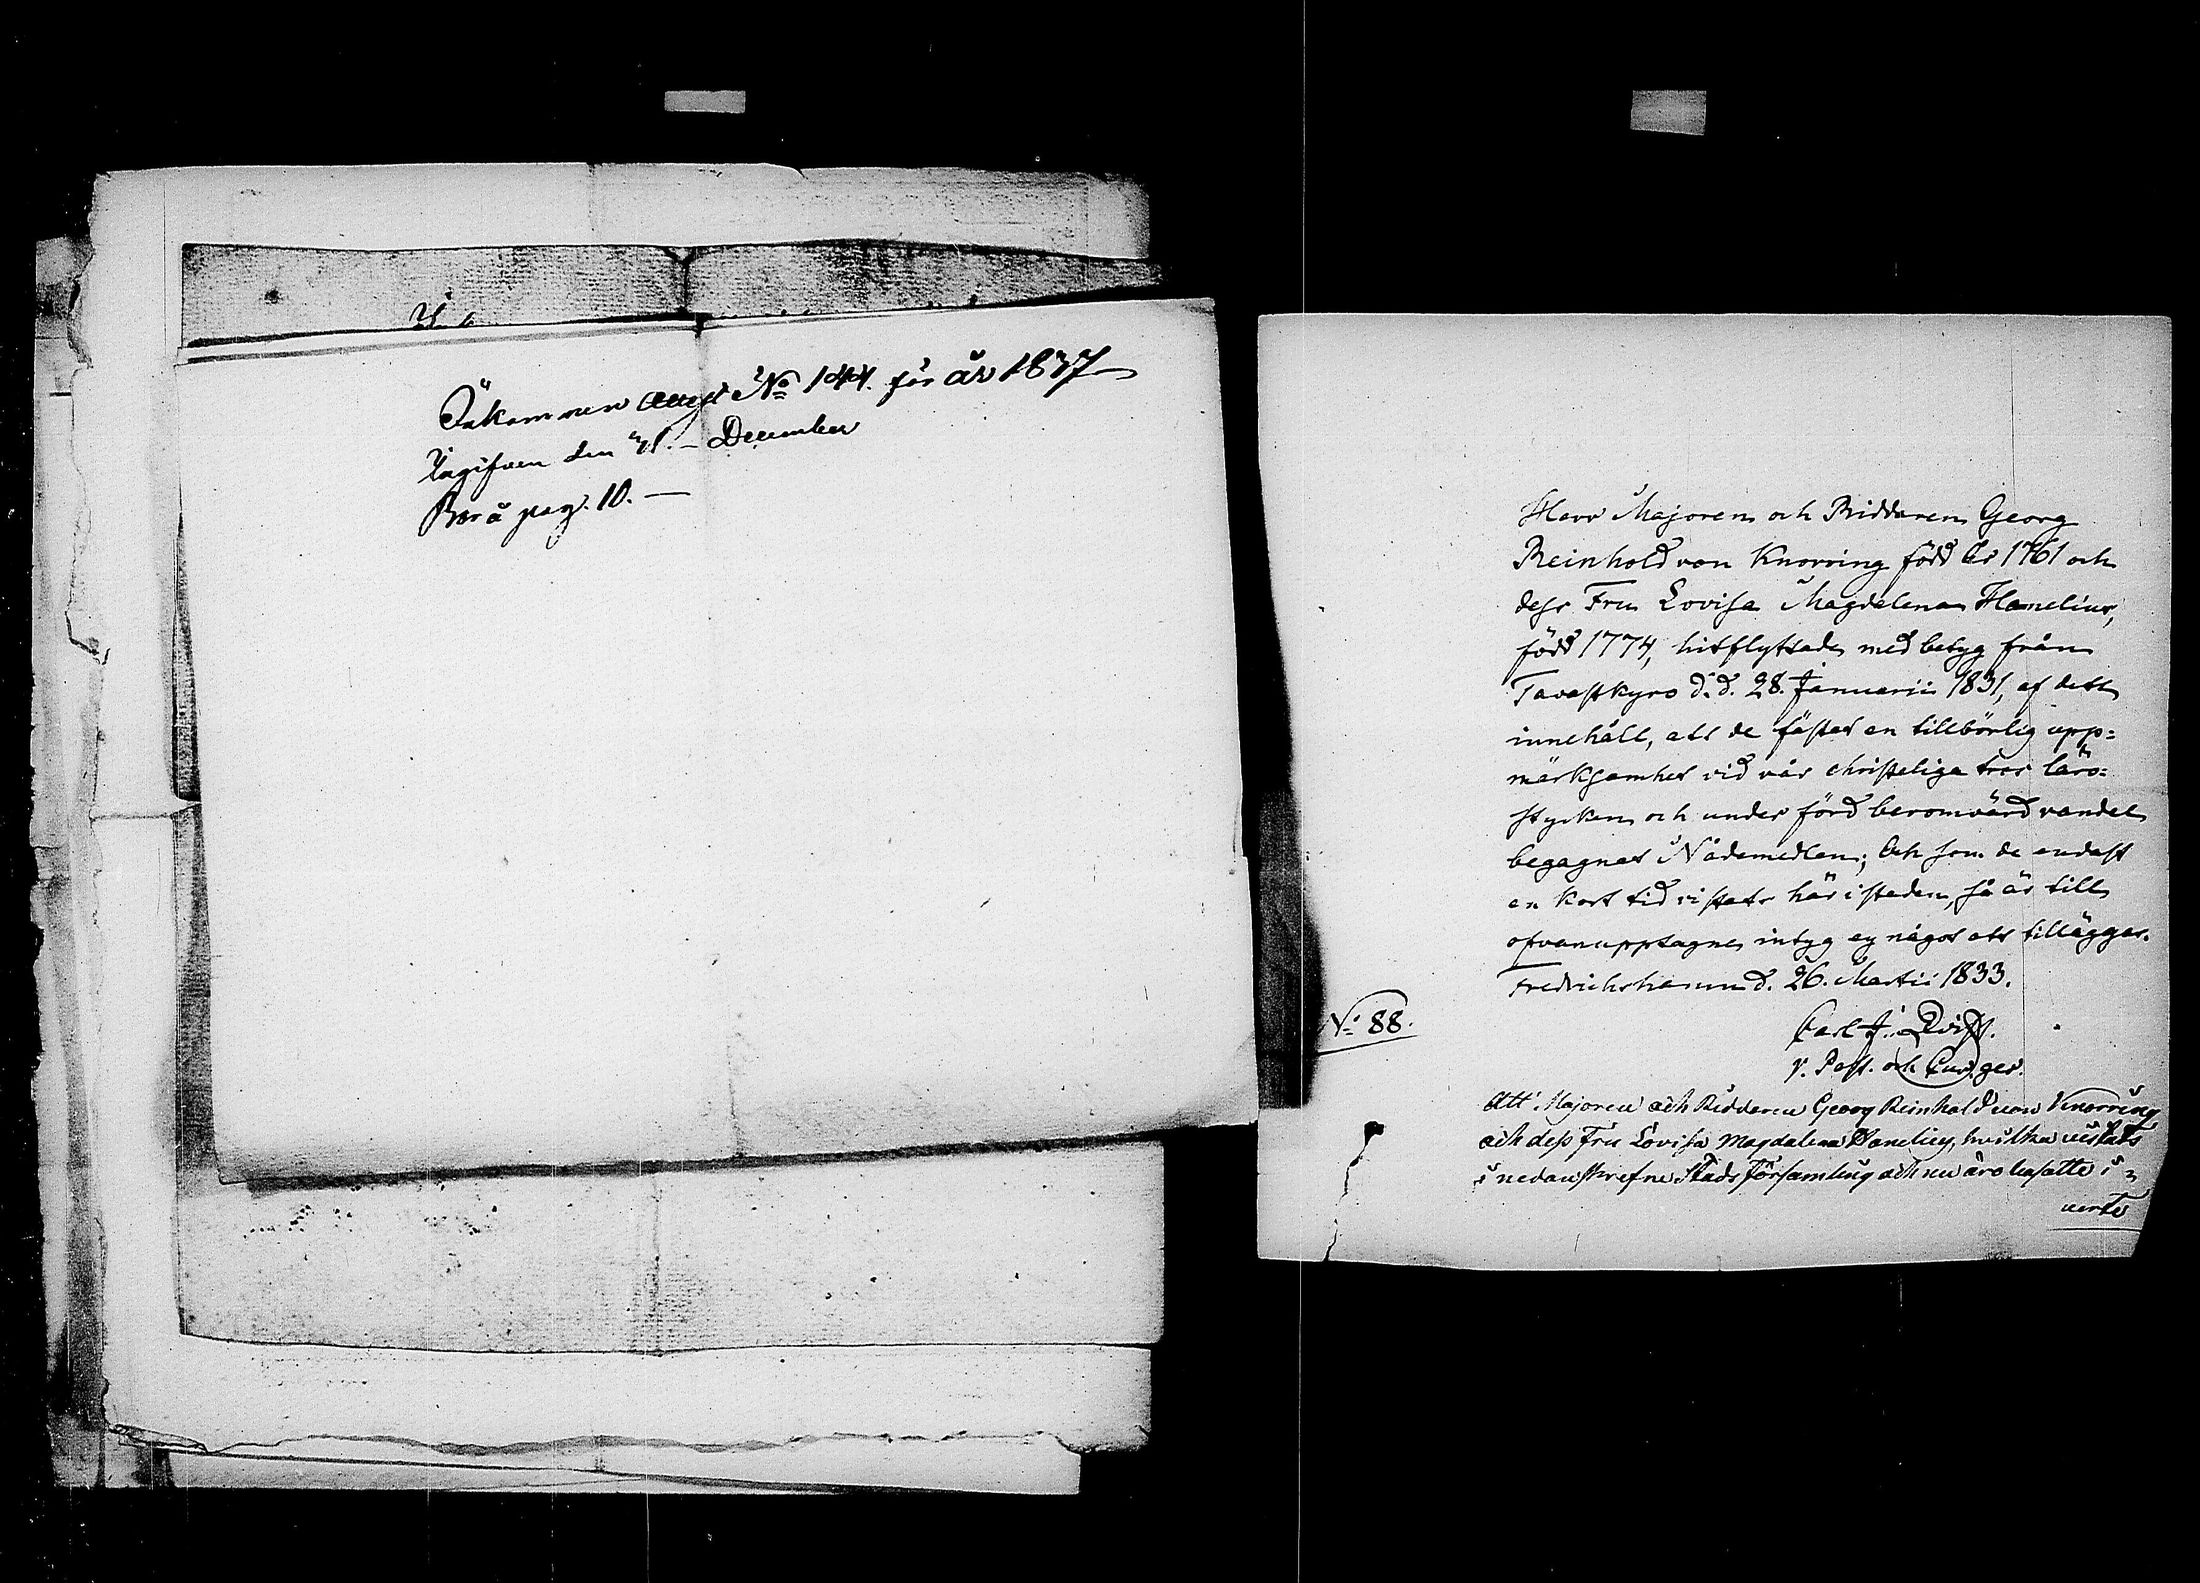 Inkommen attest No 144. för år 1837
Ingifven den 31. December
Borå pag. 10.
Herr Majoren och Riddaren Georg
Reinhold von Knorring född år 1761 och
dess Fru Lovisa Magdalena Hamelius,
född 1774, hitflyttade med betyg från
Tavastkyro d.d. 28. Januarii 1831, af dett
innehåll, att de fästat en tillbörlig upp=
märksamhet vid vår christeliga tros läro=
stycken och under förd berömvärd vandel
begagnat Nådemedlen; Och som de endast
en kort tid vistats här i staden, så är till
ofvanupptagne intyg ej något att tillägga.
Fredrichshamn d. 26. Martii 1833.
No 88.
Carl J. Qvist.
v. Past. och
Att Majoren och Ridderen Georg Reinhold von Knorring
och dess Fru Lovisa Magdalena Hamelius, hvilka vistats
i nedanskrefne Stads församling och nu äro bosatte i
verte